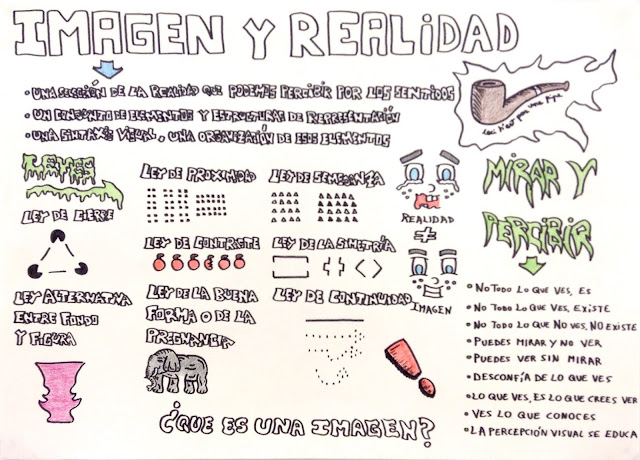 IMAGEN Y REALIDAD
• UNA SECCIÓN DE LA REALIDAD QUE PODEMOS PERCIBIR POR LOS SENTIDOS
• UN CONJUNTO DE ELEMENTOS Y ESTRUCTURAS DE REPRESENTACIÓN
• UNA SINTAXIS VISUAL, UNA ORGANIZACIÓN DE ESOS ELEMENTOS
Ceci n'est pas une pipe
LEYES
LEY DE CIERRE
LEY DE PROXIMIDAD
LEY DE SEMEJANZA
LEY DE CONTRSTE
LEY DE LA SIMETRÍA
LEY ALTERNATIVA
ENTRE FONDO
Y FIGURA
LEY DE LA BUENA
FORMA O DE LA
PREGNANCIA
LEY DE CONTINUIDAD
REALIDAD
≠
IMAGEN
MIRAR Y
PERCIBIR
• NO TODO LO QUE VES, ES
• NO TODO LO QUE VES, EXISTE
• NO TODO LO QUE NO VES, NO EXISTE
• PUEDES MIRAR Y NO VER
• PUEDES VER SIN MIRAR
• DESCONFÍA DE LO QUE VES
• LO QUE VES, ES LO QUE CREES VER
• VES LO QUE CONOCES
• LA PERCEPCIÓN VISUAL SE EDUCA
¿QUE ES UNA IMAGEN?